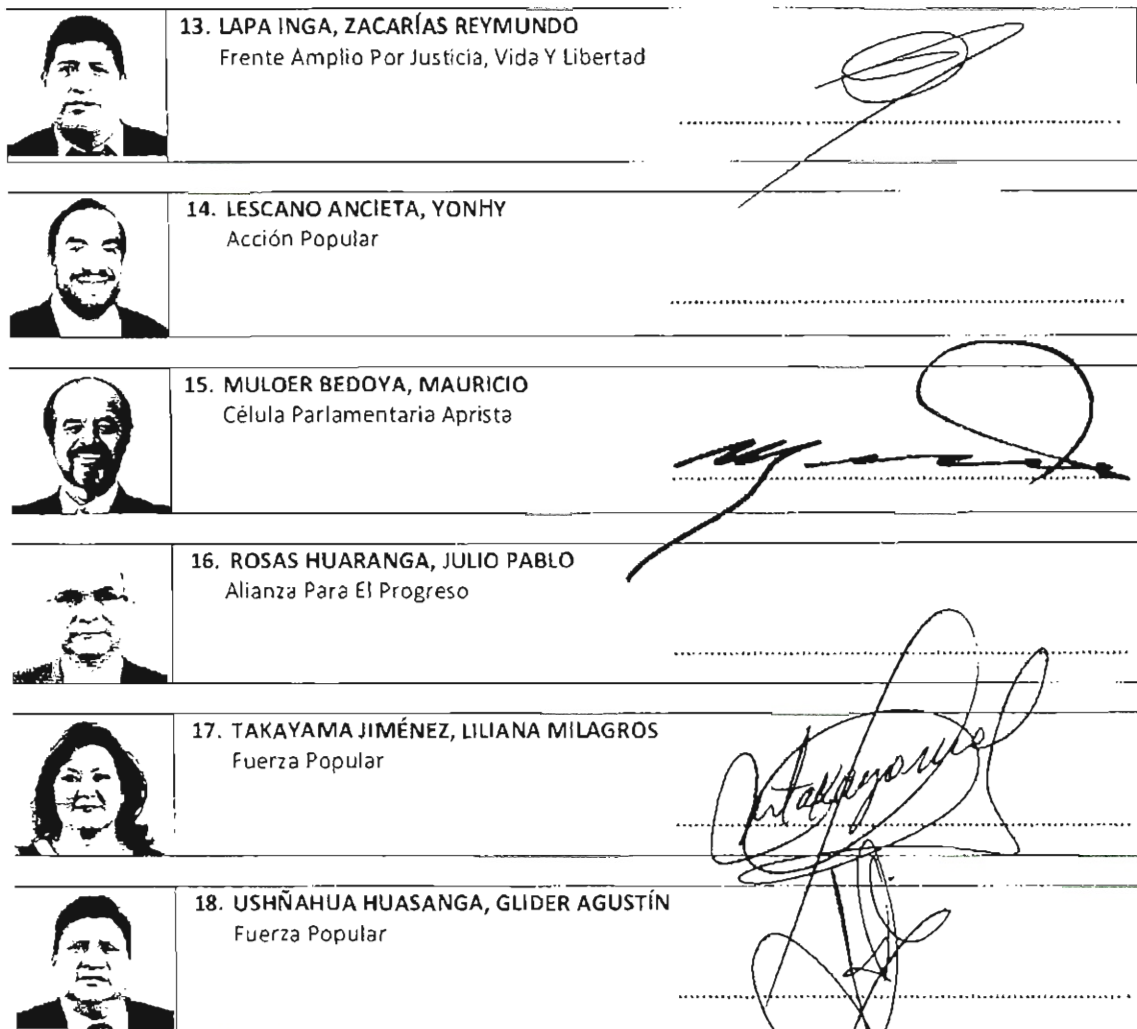 13. LAPA INGA, ZACARÍAS REYMUNDO
Frente Amplio Por Justicia, Vida Y Libertad
14. LESCANO ANCIETA, YONHY
Acción Popular
15. MULOER BEDOYA, MAURICIO
Célula Parlamentaria Aprista
16. ROSAS HUARANGA, JULIO PABLO
Alianza Para El Progreso
17. TAKAYAMA JIMÉNEZ, LILIANA MILAGROS
Fuerza Popular
18. USHÑAHUA HUASANGA, GLIDER AGUSTÍN
Fuerza Popular